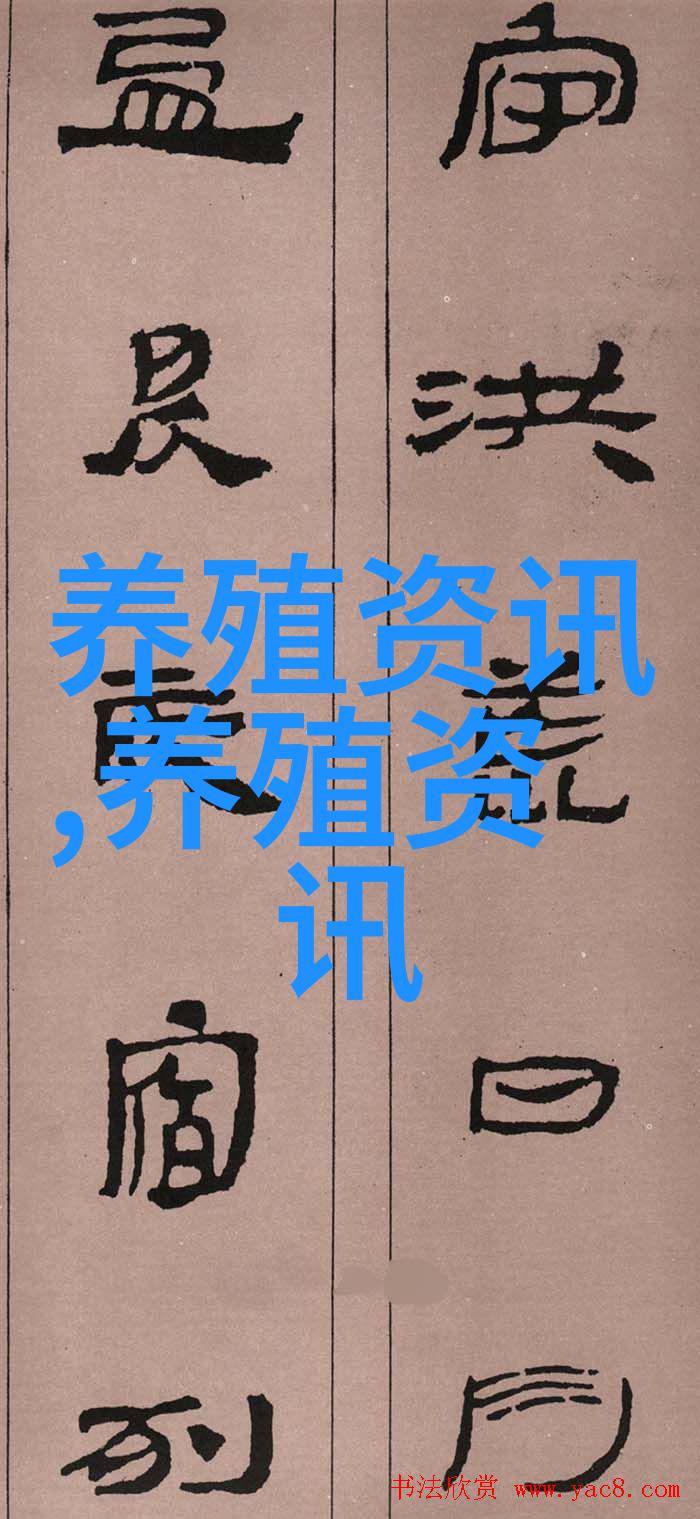 宙洪荒日月
盈昃辰宿列
养殖资讯
,养殖资
讯
书法欣赏 www.yac8.com